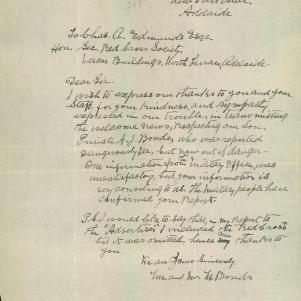 Adelaide
To Chas. A. Edmunds Esqr.
Hon Sec. Red Cross Society
Buildings, North Terrace, Adelaide.
Dear Sir.
I wish to express our thanks to you and your
Staff, for your kindness, and sympathy
expressed in our trouble, in transmitting
the welcome news, respecting our son.
Private A. J. Bonds, who was reported
Dangerously ill, but now out of danger.
Our information from the Military Office, was
unsatisfactory, but your information is
very consoling to us. The Military people have
confirmed your Report
P.S. I would like to say that, in my report to
the "Advertiser" I included the "Red Cross"
but it was omitted, hence my thanks to
you.
Yours Sincerely
Mr and Mrs